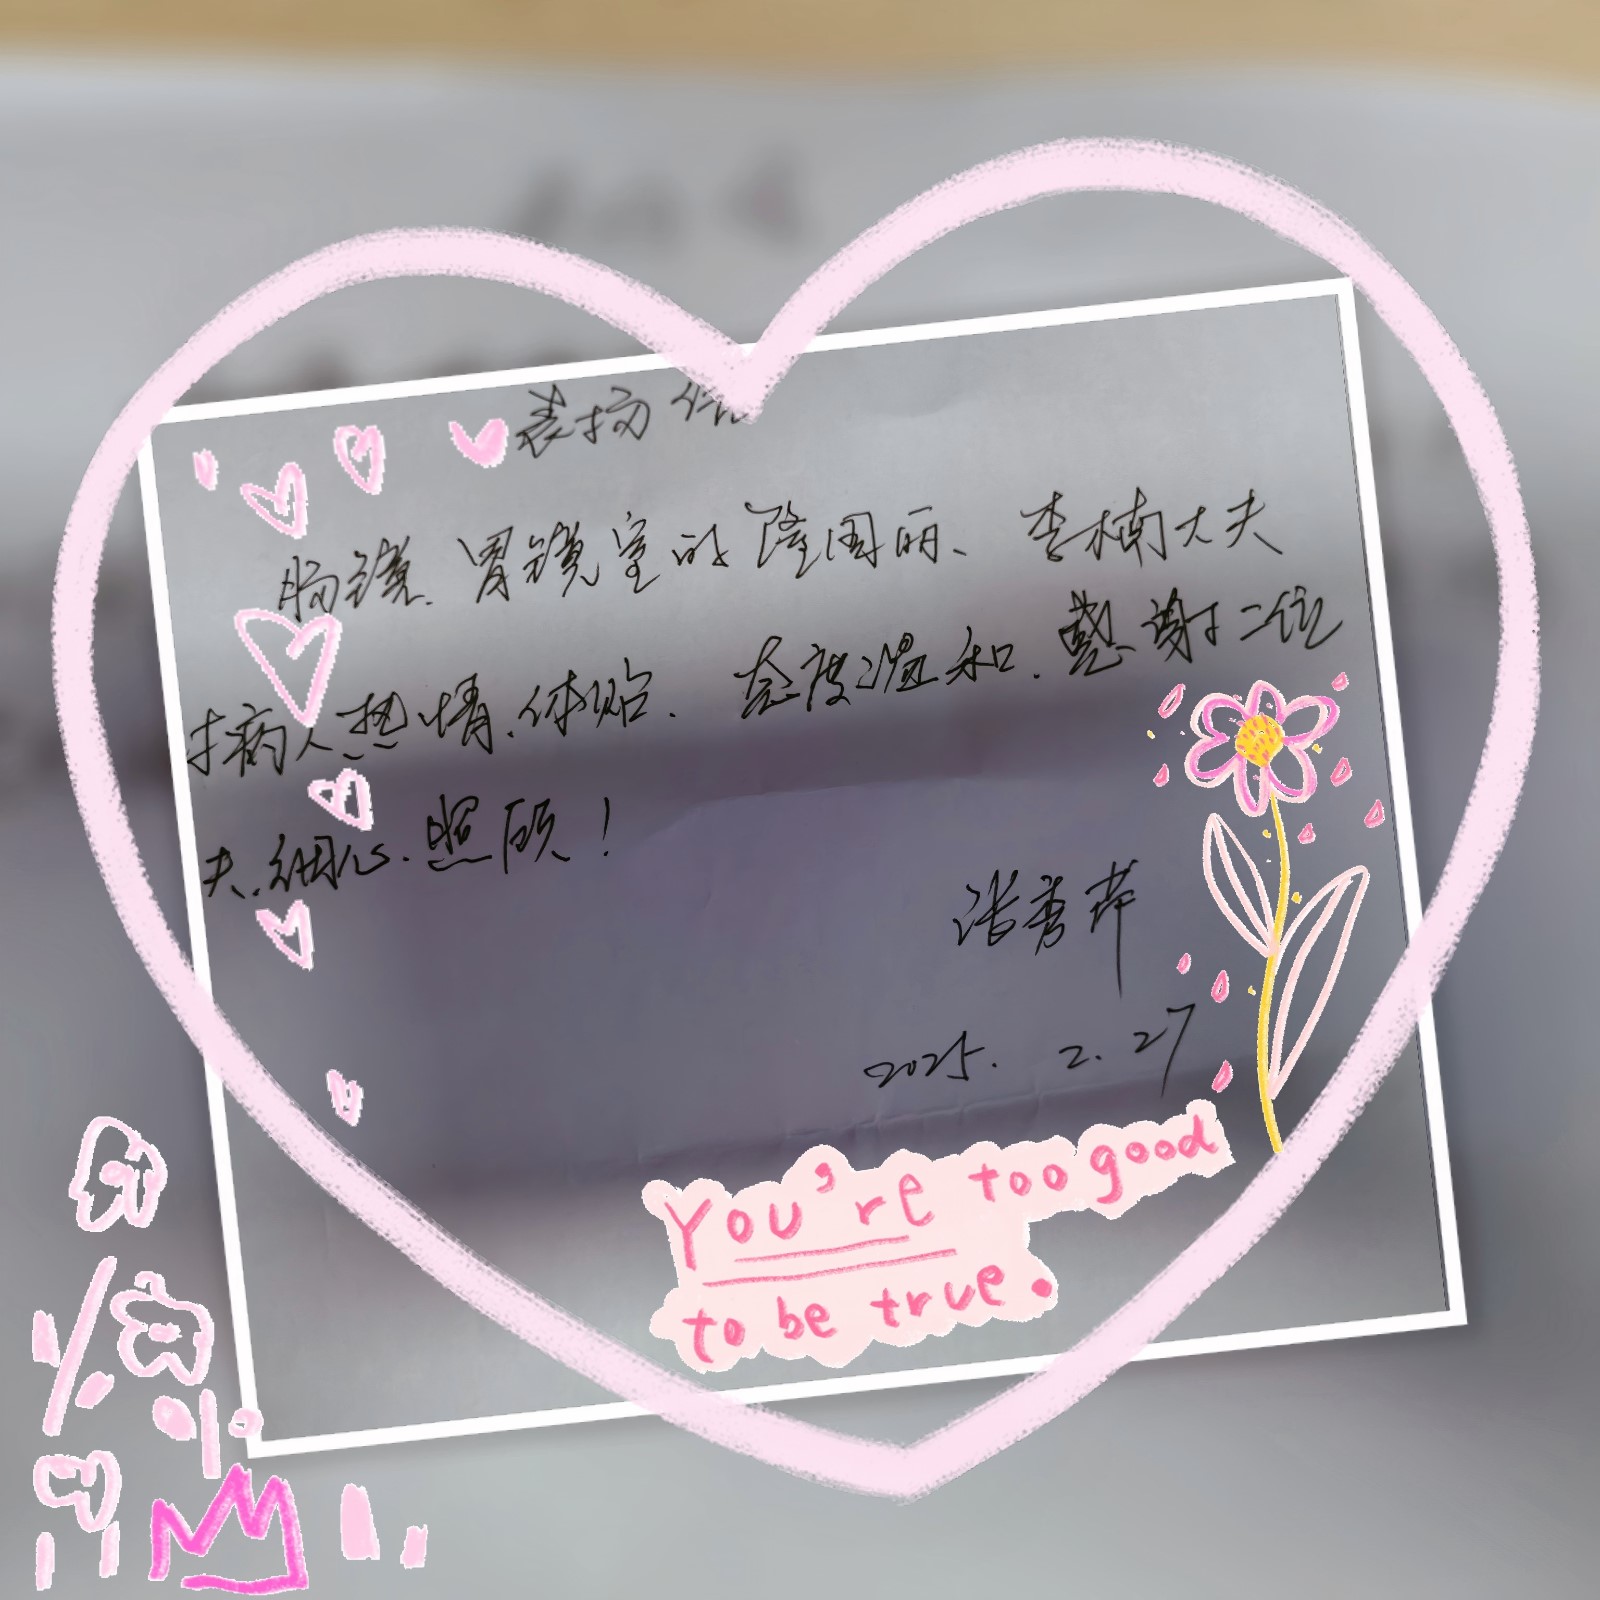 表扬信
肠镜、胃镜室的隆国丽、李楠大夫
对病人热情、体贴、态度温和、感谢二位
大夫、细心、照顾！
张秀萍
2025.2.27
You're too good
to be true.